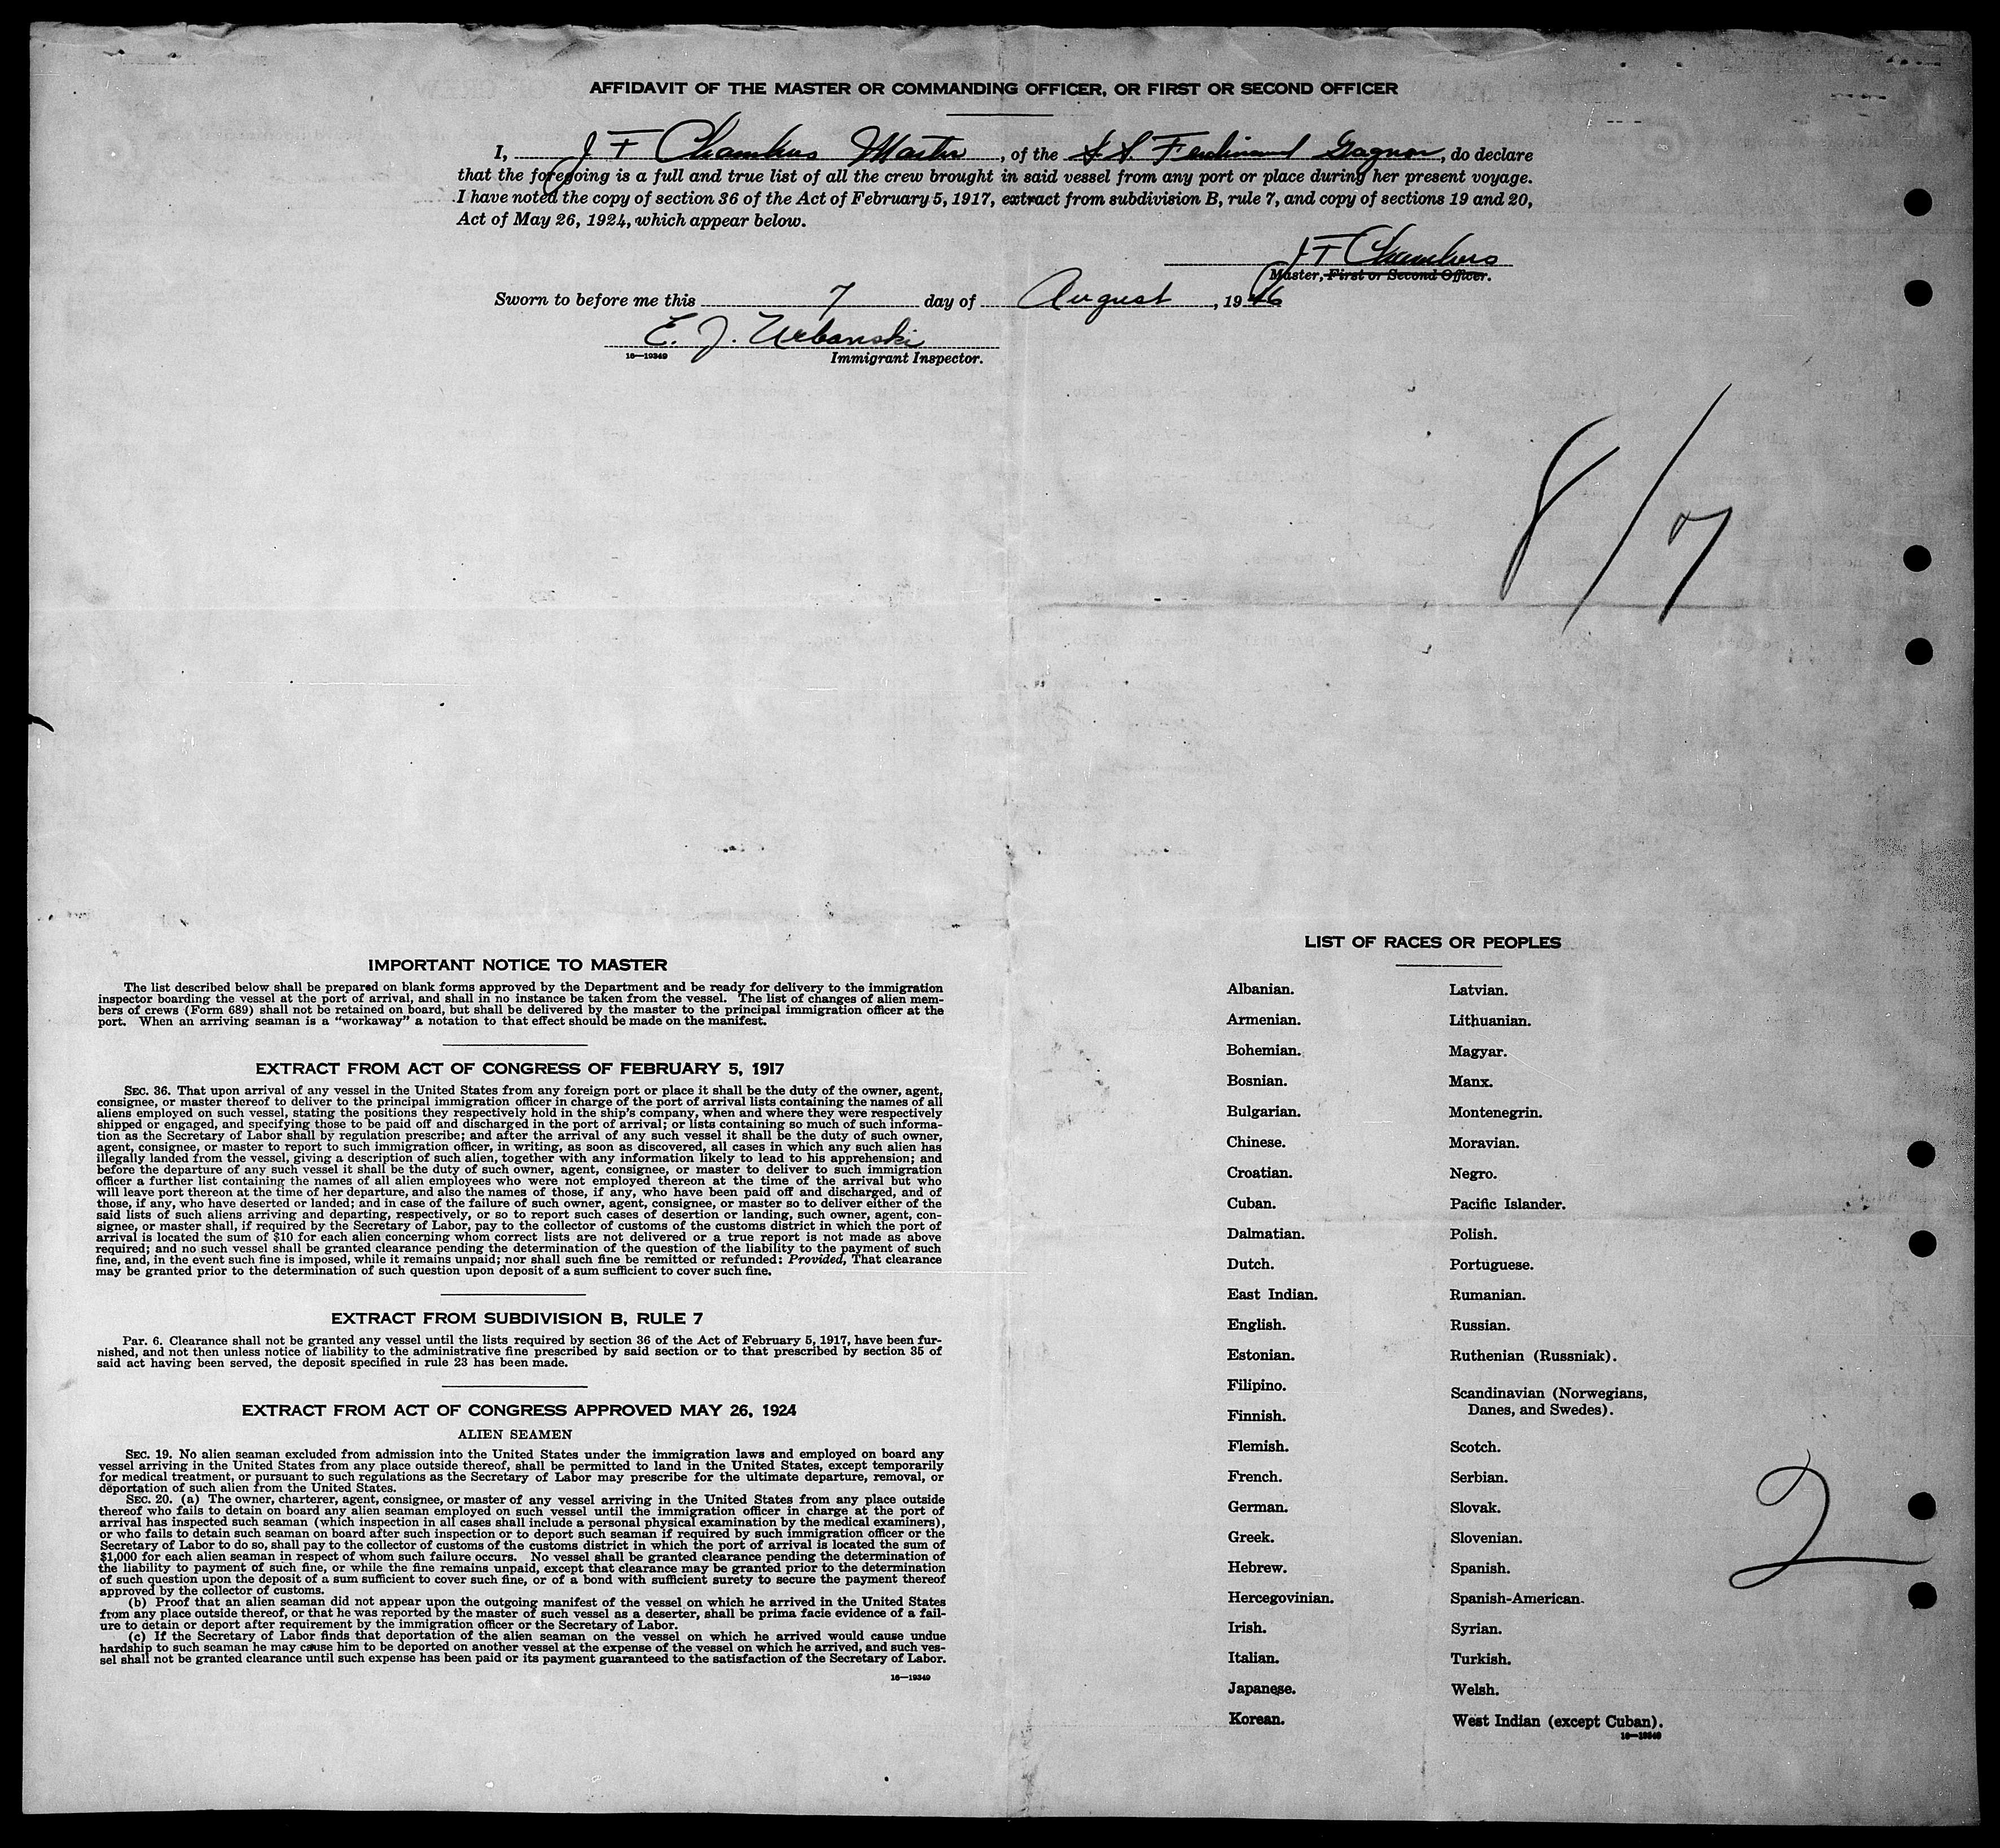 AFFIDAVIT OF THE MASTER OR COMMANDING OFFICER, OR FIRST OR SECOND OFFICER
I, J F Chambers Master, of the S.S. Ferdinand Gagnon, do declare
that the foregoing is a full and true list of all the crew brought in said vessel from any port or place during her present voyage.
I have noted the copy of section 36 of the Act of February 5, 1917, extract from subdivision B, rule 7, and copy of sections 19 and 20,
Act of May 26, 1924, which appear below.
J F Chambers
Master, First or Second Officer.
Sworn to before me this 7 day of August, 1946
E. J. Urbanski
16—19349 Immigrant Inspector.
8/7
IMPORTANT NOTICE TO MASTER
The list described below shall be prepared on blank forms approved by the Department and be ready for delivery to the immigration
inspector boarding the vessel at the port of arrival, and shall in no instance be taken from the vessel. The list of changes of alien mem-
bers of crews (Form 689) shall not be retained on board, but shall be delivered by the master to the principal immigration officer at the
port. When an arriving seaman is a "workaway" a notation to that effect should be made on the manifest.
EXTRACT FROM ACT OF CONGRESS OF FEBRUARY 5, 1917
SEC. 36. That upon arrival of any vessel in the United States from any foreign port or place it shall be the duty of the owner, agent,
consignee, or master thereof to deliver to the principal immigration officer in charge of the port of arrival lists containing the names of all
aliens employed on such vessel, stating the positions they respectively hold in the ship's company, when and where they were respectively
shipped or engaged, and specifying those to be paid off and discharged in the port of arrival; or lists containing so much of such informa-
tion as the Secretary of Labor shall by regulation prescribe; and after the arrival of any such vessel it shall be the duty of such owner,
agent, consignee, or master to report to such immigration officer, in writing, as soon as discovered, all cases in which any such alien has
illegally landed from the vessel, giving a description of such alien, together with any information likely to lead to his apprehension; and
before the departure of any such vessel it shall be the duty of such owner, agent, consignee, or master to deliver to such immigration
officer a further list containing the names of all alien employees who were not employed thereon at the time of the arrival but who
will leave port thereon at the time of her departure, and also the names of those, if any, who have been paid off and discharged, and of
those, if any, who have deserted or landed; and in case of the failure of such owner, agent, consignee, or master so to deliver either of the
said lists of such aliens arriving and departing, respectively, or so to report such cases of desertion or landing, such owner, agent, con-
signee, or master shall, if required by the Secretary of Labor, pay to the collector of customs of the customs district in which the port of
arrival is located the sum of $10 for each alien concerning whom correct lists are not delivered or a true report is not made as above
required; and no such vessel shall be granted clearance pending the determination of the question of the liability to the payment of such
fine, and, in the event such fine is imposed, while it remains unpaid; nor shall such fine be remitted or refunded: Provided, That clearance
may be granted prior to the determination of such question upon deposit of a sum sufficient to cover such fine.
EXTRACT FROM SUBDIVISION B, RULE 7
Par. 6. Clearance shall not be granted any vessel until the lists required by section 36 of the Act of February 5, 1917, have been fur-
nished, and not then unless notice of liability to the administrative fine prescribed by said section or to that prescribed by section 35 of
said act having been served, the deposit specified in rule 23 has been made.
EXTRACT FROM ACT OF CONGRESS APPROVED MAY 26, 1924
ALIEN SEAMEN
SEC. 19. No alien seaman excluded from admission into the United States under the immigration laws and employed on board any
vessel arriving in the United States from any place outside thereof, shall be permitted to land in the United States, except temporarily
for medical treatment, or pursuant to such regulations as the Secretary of Labor may prescribe for the ultimate departure, removal, or
deportation of such alien from the United States.
SEC. 20. (a) The owner, charterer, agent, consignee, or master of any vessel arriving in the United States from any place outside
thereof who fails to detain on board any alien seaman employed on such vessel until the immigration officer in charge at the port of
arrival has inspected such seaman (which inspection in all cases shall include a personal physical examination by the medical examiners),
or who fails to detain such seaman on board after such inspection or to deport such seaman if required by such immigration officer or the
Secretary of Labor to do so, shall pay to the collector of customs of the customs district in which the port of arrival is located the sum of
$1,000 for each alien seaman in respect of whom such failure occurs. No vessel shall be granted clearance pending the determination of
the liability to the payment of such fine, or while the fine remains unpaid, except that clearance may be granted prior to the determination
of such question upon the deposit of a sum sufficient to cover such fine, or of a bond with sufficient surety to secure the payment thereof
approved by the collector of customs.
(b) Proof that an alien seaman did not appear upon the outgoing manifest of the vessel on which he arrived in the United States
from any place outside thereof, or that he was reported by the master of such vessel as a deserter, shall be prima facie evidence of a fail-
ure to detain or deport after requirement by the immigration officer or the Secretary of Labor.
(c) If the Secretary of Labor finds that deportation of the alien seaman on the vessel on which he arrived would cause undue
hardship to such seaman he may cause him to be deported on another vessel at the expense of the vessel on which he arrived, and such ves-
sel shall not be granted clearance until such expense has been paid or its payment guaranteed to the satisfaction of the Secretary of Labor.
16—19349
LIST OF RACES OR PEOPLES
Albanian.
Armenian.
Bohemian.
Bosnian.
Bulgarian.
Chinese.
Croatian.
Cuban.
Dalmatian.
Dutch.
East Indian.
English.
Estonian.
Filipino.
Finnish.
Flemish.
French.
German.
Greek.
Hebrew.
Hercegovinian.
Irish.
Italian.
Japanese.
Korean.
Latvian.
Lithuanian.
Magyar.
Manx.
Montenegrin.
Moravian.
Negro.
Pacific Islander.
Polish.
Portuguese.
Rumanian.
Russian.
Ruthenian (Russniak).
Scandinavian (Norwegians,
Danes, and Swedes).
Scotch.
Serbian.
Slovak.
Slovenian.
Spanish.
Spanish-American.
Syrian.
Turkish.
Welsh.
West Indian (except Cuban).
16—19349
2